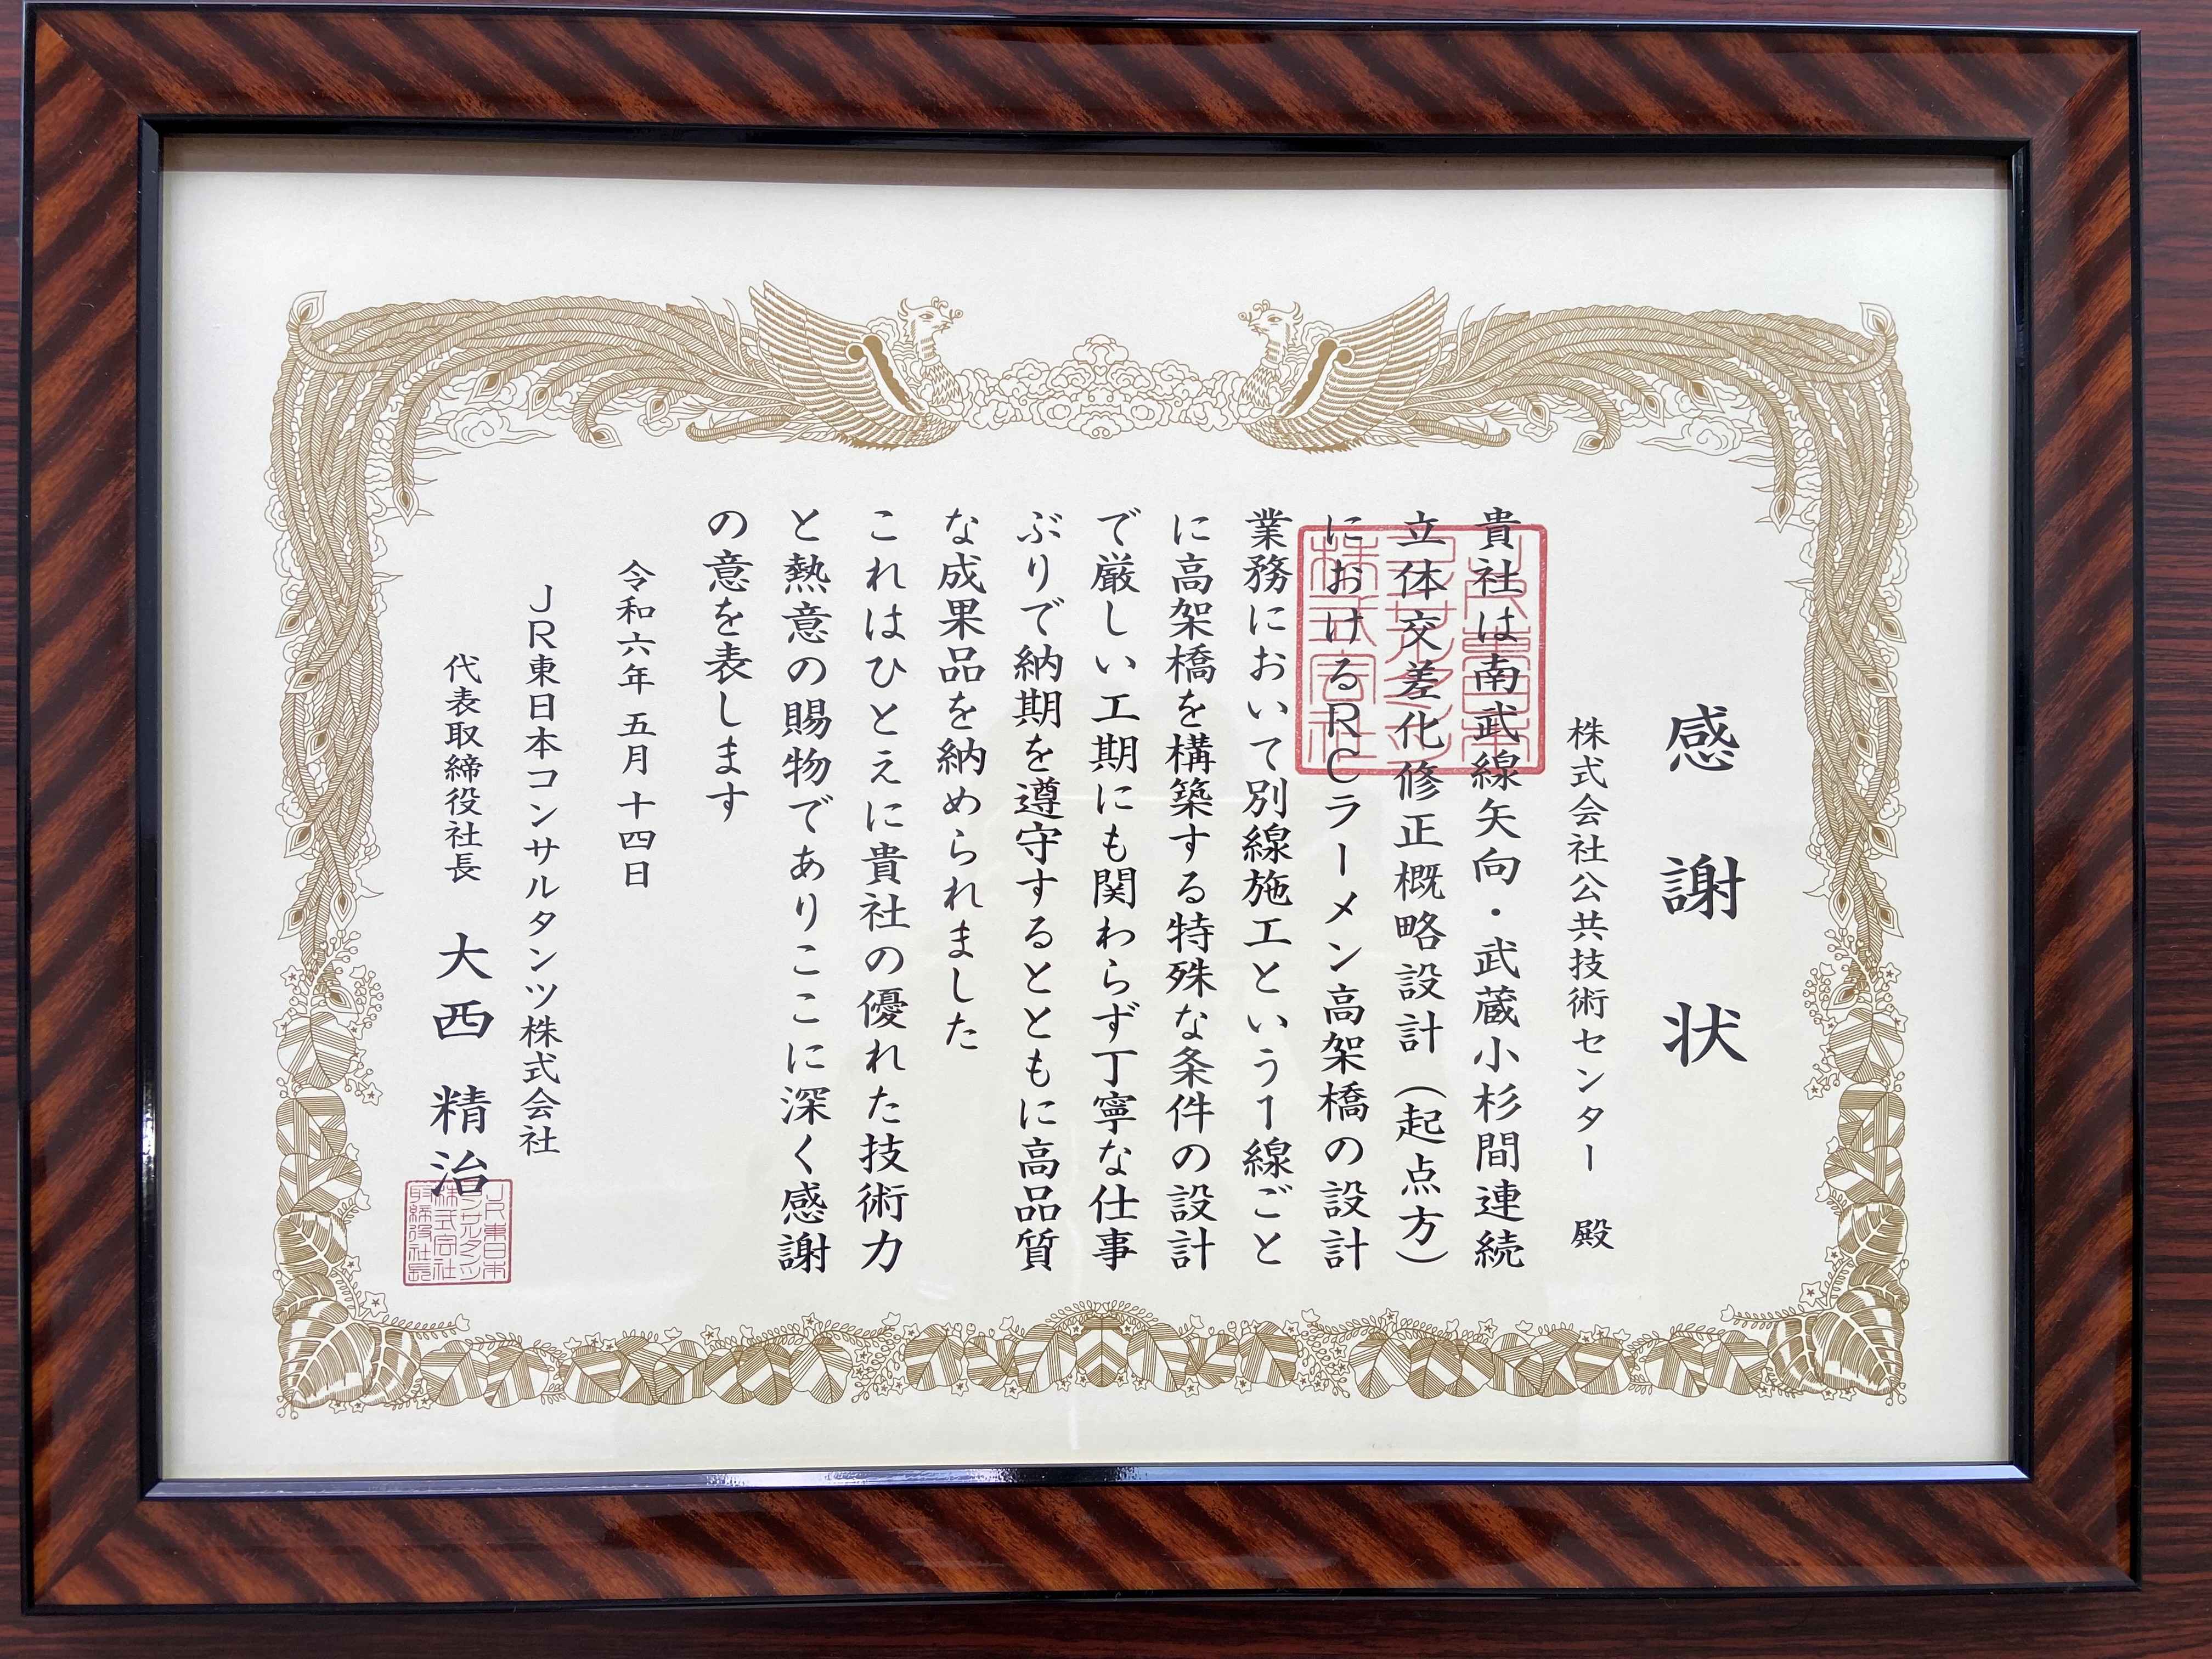 感謝状
株式会社公共技術センター 殿
貴社は南武線矢向・武蔵小杉間連続
立体交差化修正概略設計（起点方）
におけるRCラーメン高架橋の設計
業務において別線施工という1線ごと
に高架橋を構築する特殊な条件の設計
で厳しい工期にも関わらず丁寧な仕事
ぶりで納期を遵守するとともに高品質
な成果品を納められました
これはひとえに貴社の優れた技術力
と熱意の賜物でありここに深く感謝
の意を表します
令和六年五月十四日
JR東日本コンサルタンツ株式会社
代表取締役社長 大西精治
JR東日本
コンサルタンツ
株式会社
取締役社長